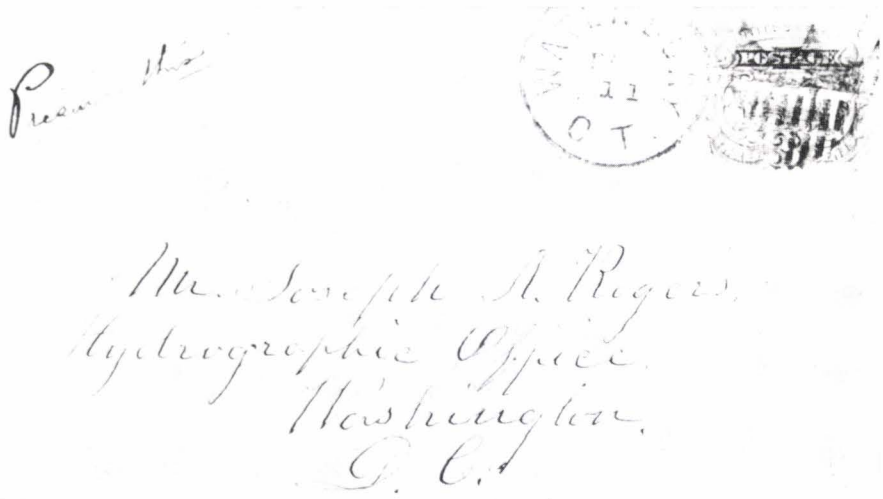 Preserve this
11
CT.
POSTAGE
Mr. Joseph A. Rogers.
Hydrographic Office.
Washington.
D. C.